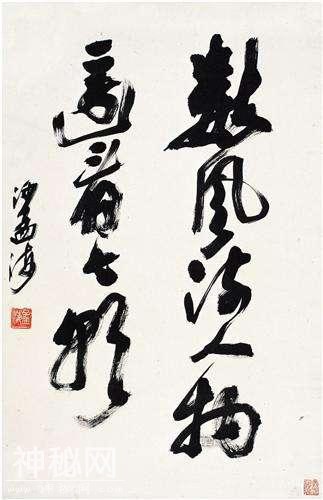 數風流人物
還看今朝
沙孟海
神秘网